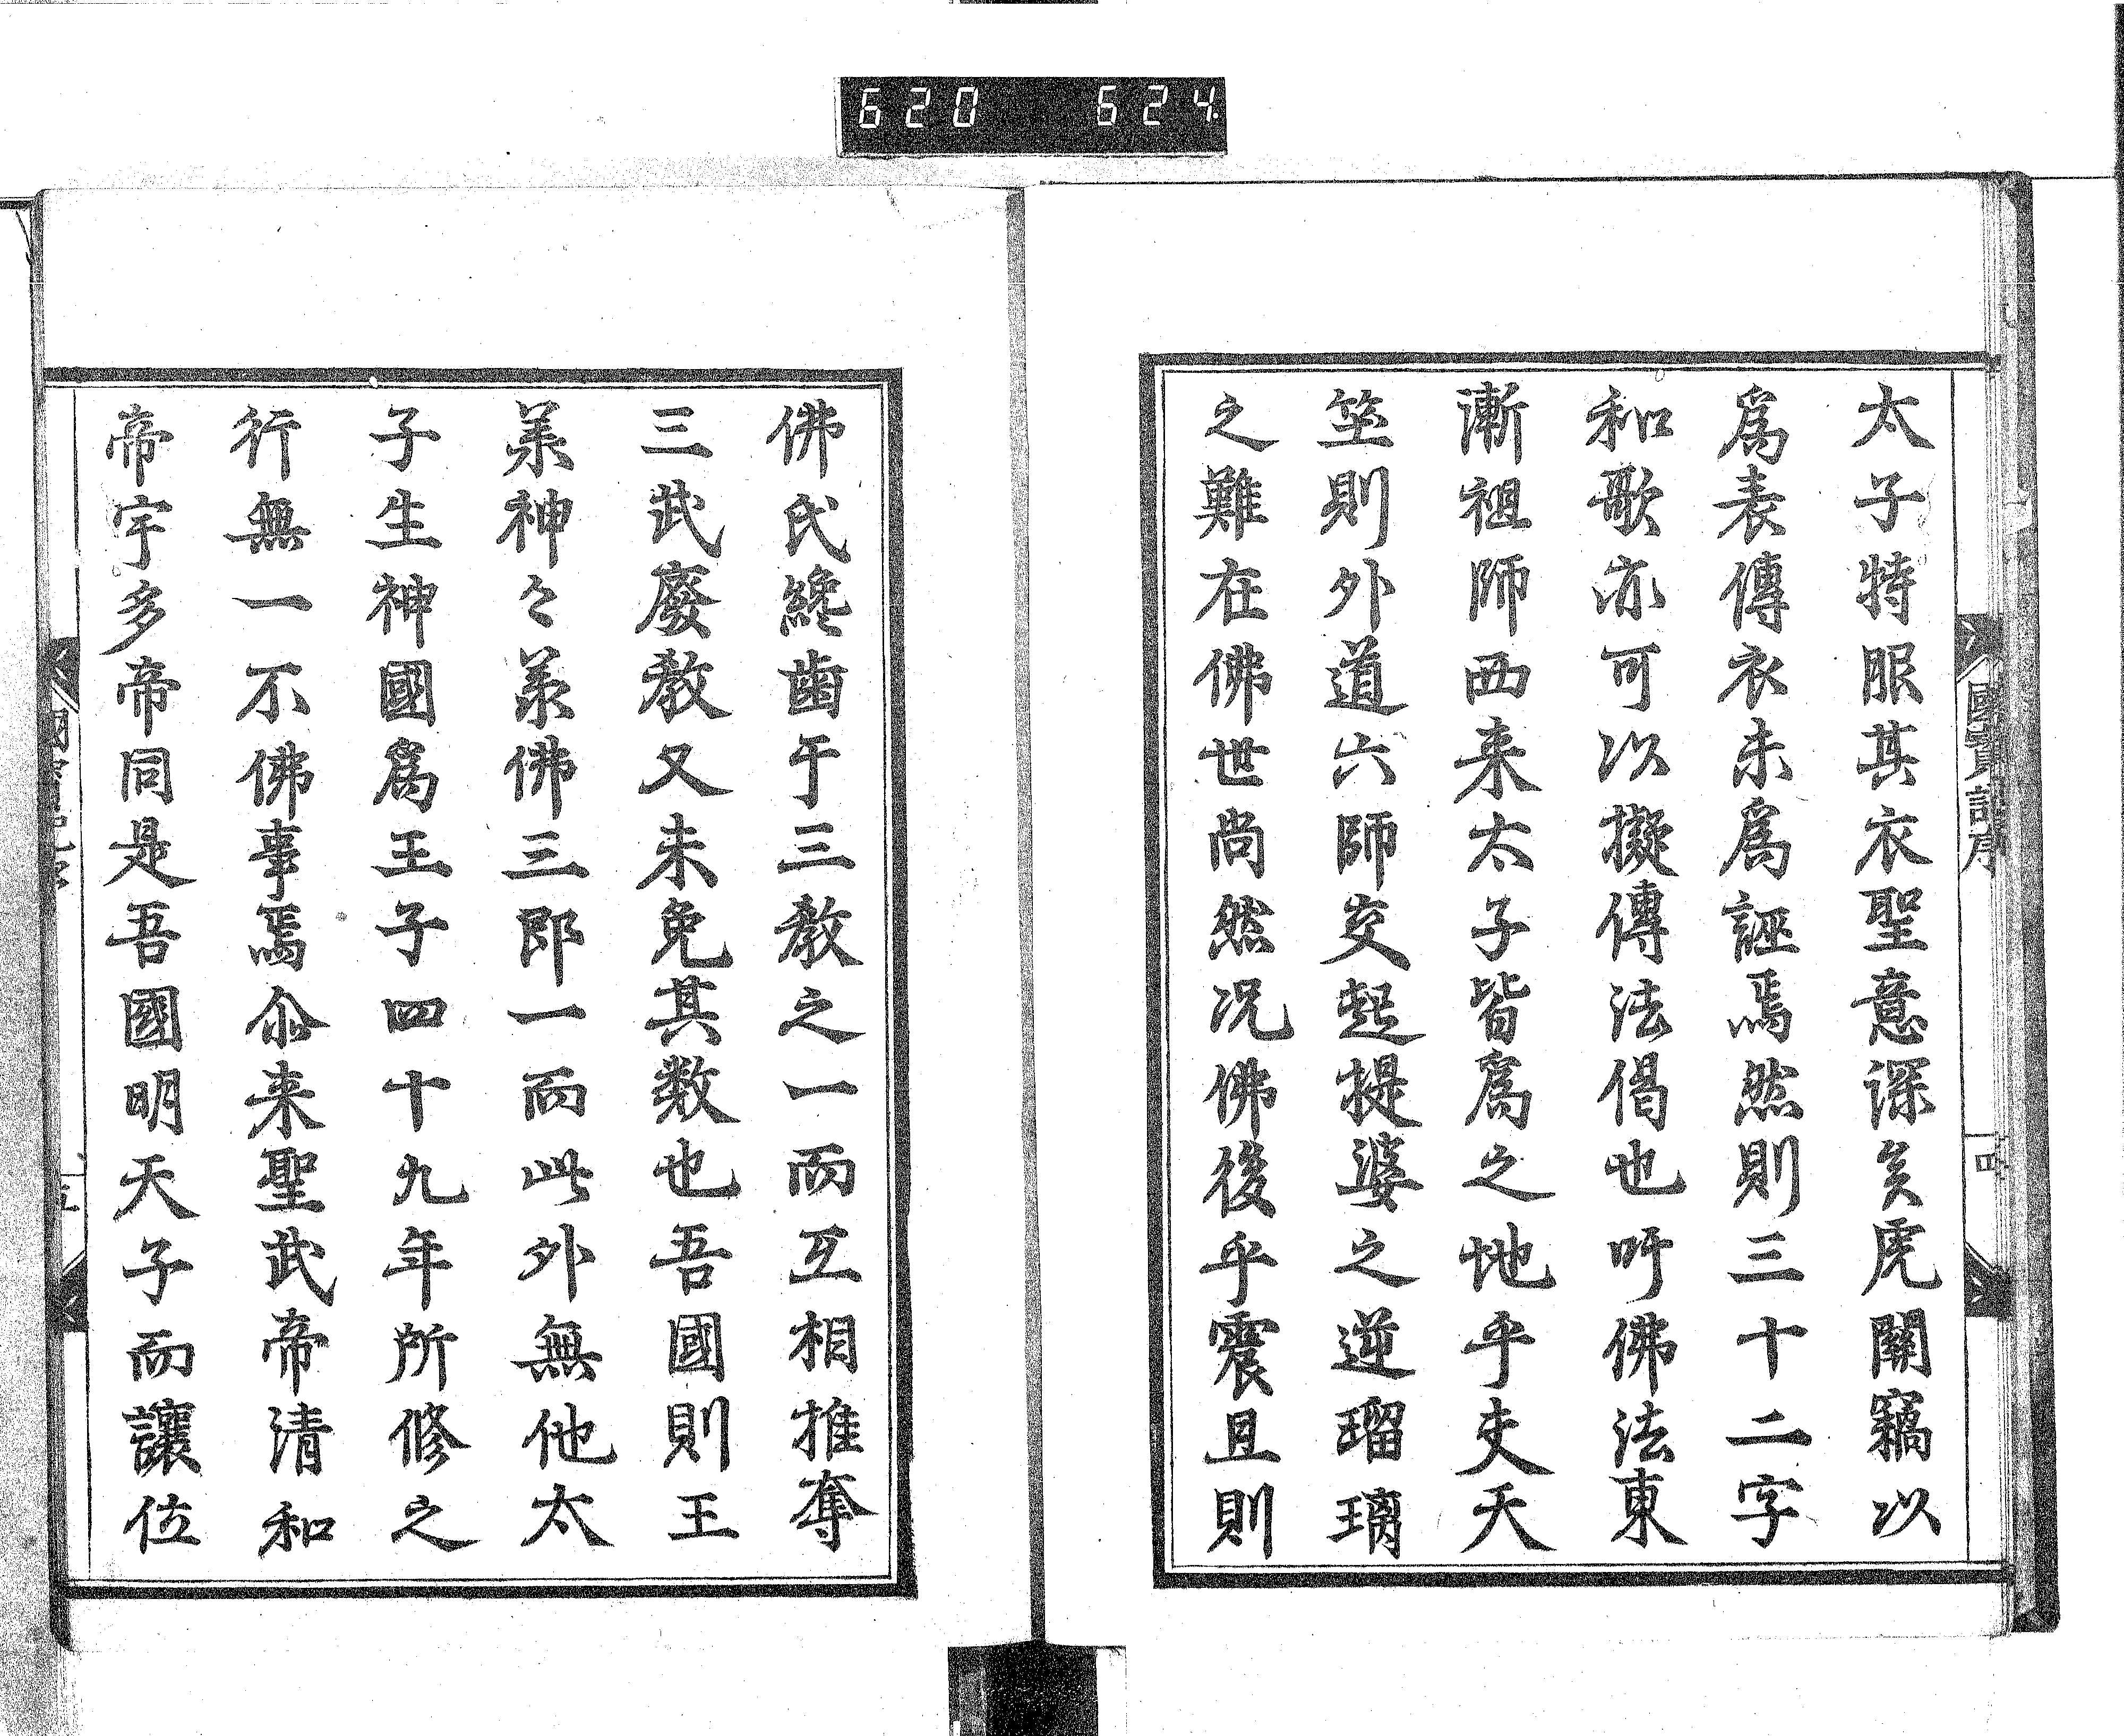 620 624
國寶記序
四
太子特服其衣聖意深矣虎關竊以
爲表傳衣未爲誣焉然則三十二字
和歌亦可以擬傳法偈也吁佛法東
漸祖師西来太子皆爲之地乎夫天
竺則外道六師交起提婆之逆瑠璃
之難在佛世尚然况佛後乎震且則
佛氏纔齒于三教之一而互相推奪
三武廢教又未免其数也吾國則王
義神々義佛三郎一而此外無他太
子生神國爲王子四十九年所修之
行無一不佛事焉尒来聖武帝清和
帝宇多帝同是吾國明天子而讓位
五